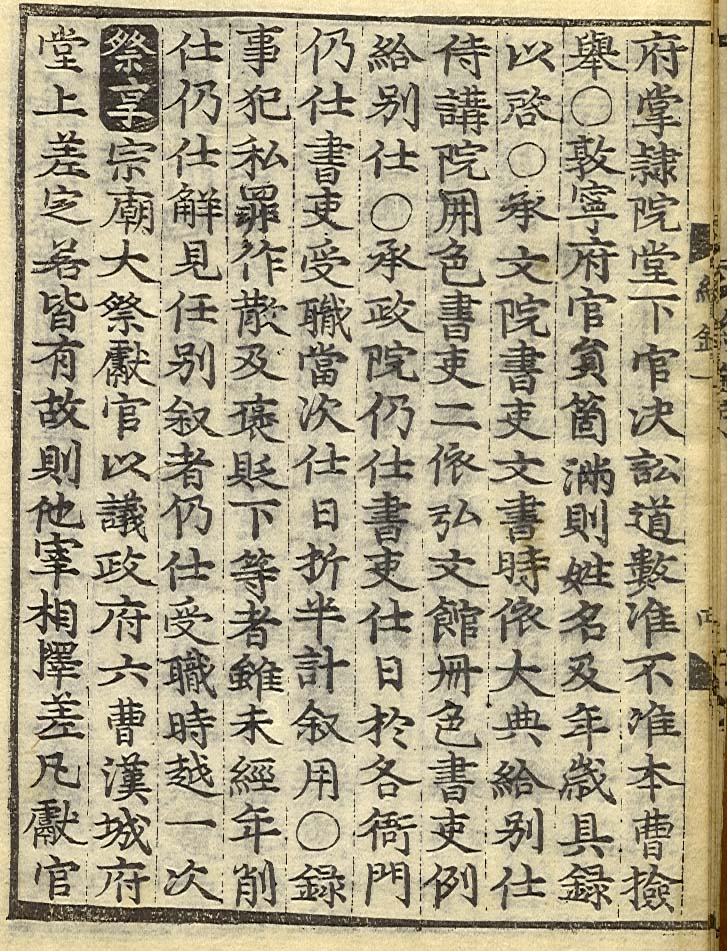 府掌隷院堂下官决訟道數准不准本曹撿
舉○敦寧府官員箇滿則姓名及年歲具錄
以啓○承文院書吏文書時依大典給别仕
侍講院冊色書吏二依弘文館冊色書吏例
給别仕○承政院仍仕書吏仕日於各衙門
仍仕書吏受職當次仕日折半計叙用○錄
事犯私罪作散及褒貶下等者雖未經年削
仕仍仕解見任别叙者仍仕受職時越一次
祭享宗廟大祭獻官以議政府六曹漢城府
堂上差定若皆有故則他宰相擇差凡獻官